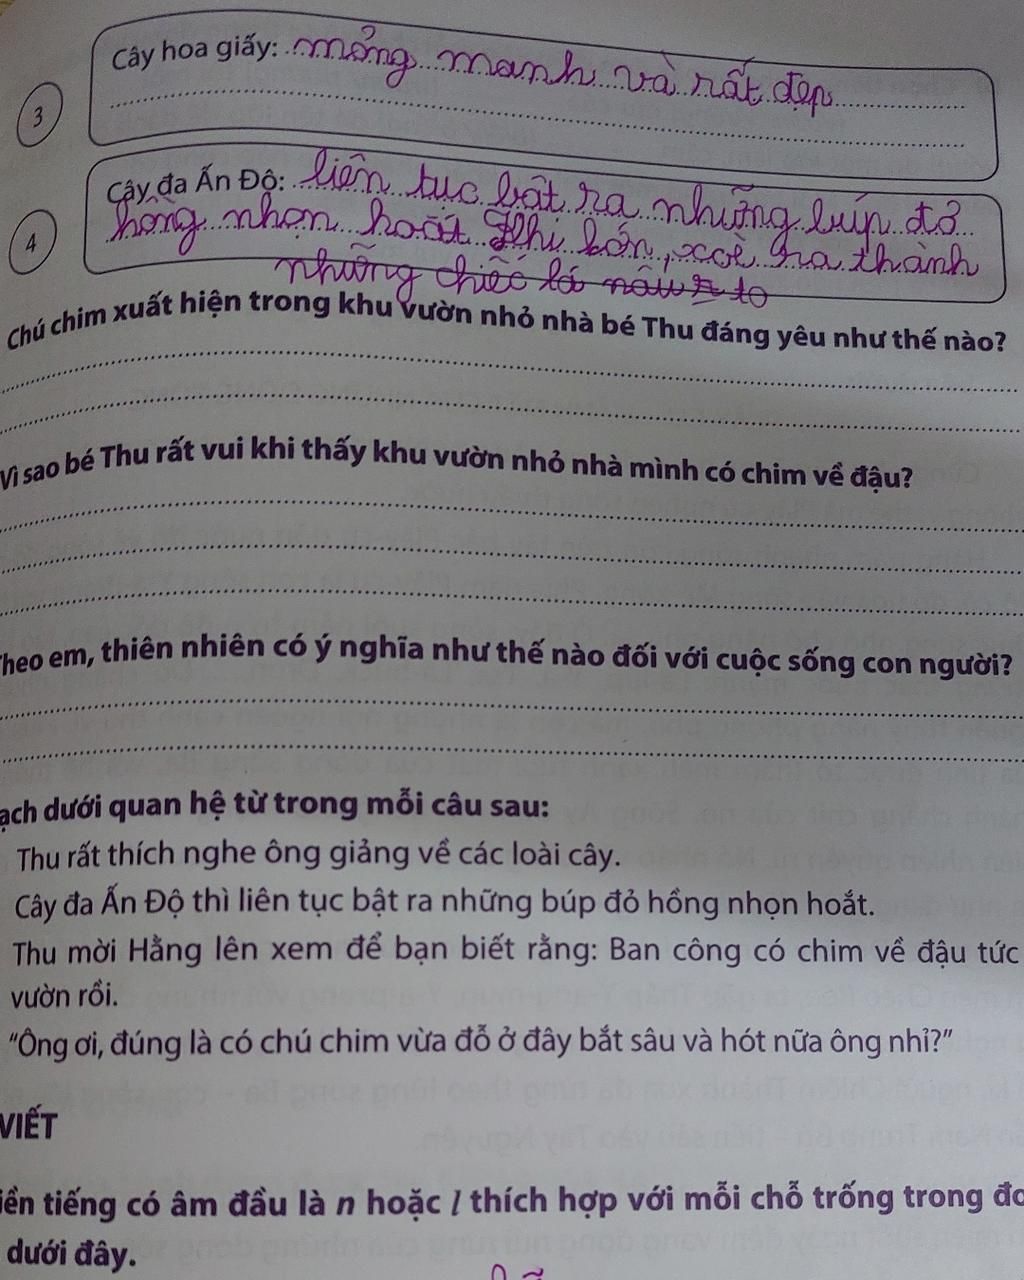 Cây hoa giấy: mỏng manh và rất đẹp
3
Cây đa Ấn Độ: liên tục bật ra những búp đỏ
4
hồng nhọn hoắt khi lớn, xoè ra thành
những chiếc lá nâu to
Chú chim xuất hiện trong khu vườn nhỏ nhà bé Thu đáng yêu như thế nào?
Vì sao bé Thu rất vui khi thấy khu vườn nhỏ nhà mình có chim về đậu?
heo em, thiên nhiên có ý nghĩa như thế nào đối với cuộc sống con người?
ạch dưới quan hệ từ trong mỗi câu sau:
Thu rất thích nghe ông giảng về các loài cây.
Cây đa Ấn Độ thì liên tục bật ra những búp đỏ hồng nhọn hoắt.
Thu mời Hằng lên xem để bạn biết rằng: Ban công có chim về đậu tức
vườn rồi.
"Ông ơi, đúng là có chú chim vừa đỗ ở đây bắt sâu và hót nữa ông nhỉ?"
VIẾT
iền tiếng có âm đầu là n hoặc l thích hợp với mỗi chỗ trống trong đo
dưới đây.